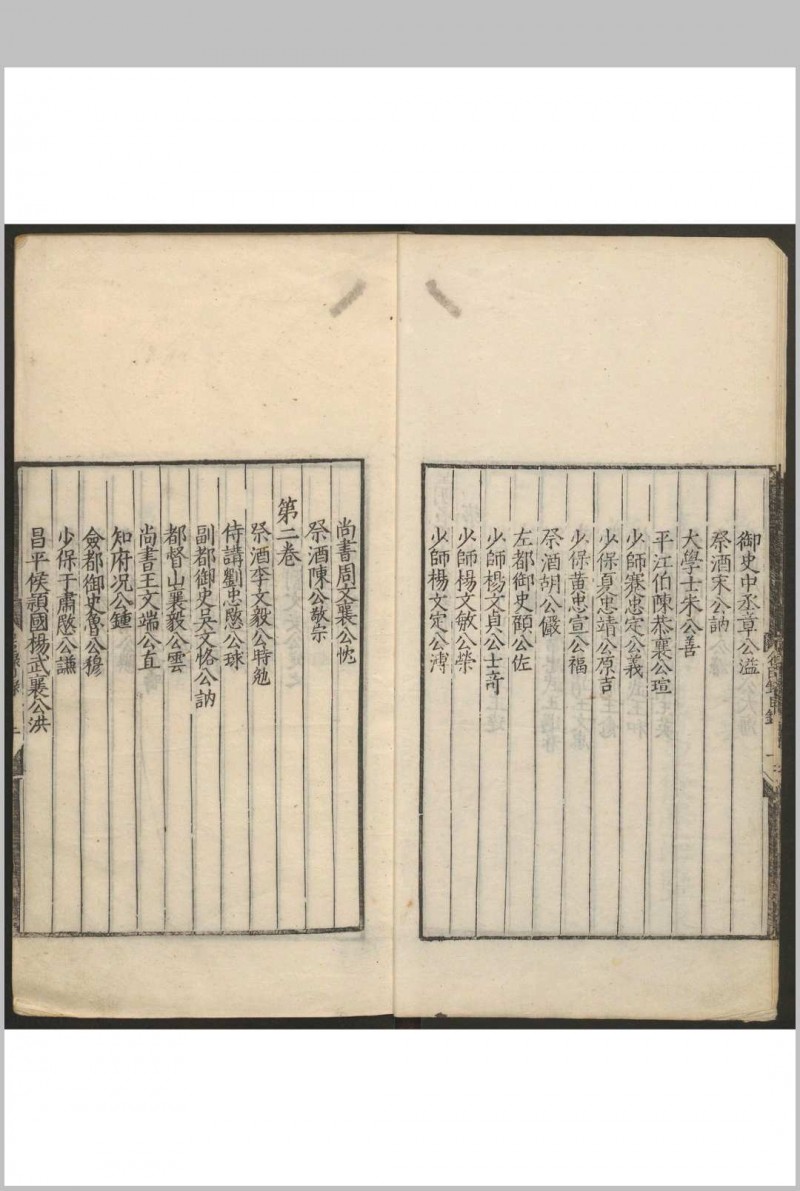 御史中丞章公溢
祭酒宋公訥
大學士朱公善
平江伯陳恭襄公瑄
少師蹇忠定公義
少保夏忠靖公原吉
少保黃忠宣公福
祭酒胡公儼
左都御史顧公佐
少師楊文貞公士竒
少師楊文敏公榮
少師楊文定公溥
尚書周文襄公忱
祭酒陳公敬宗
第二卷
祭酒李文毅公時勉
侍講劉忠愍公球
副都御史吳文恪公訥
都督山襄毅公雲
尚書王文端公直
知府况公鍾
僉都御史魯公穆
少保于肅愍公謙
昌平侯頴國楊武襄公洪